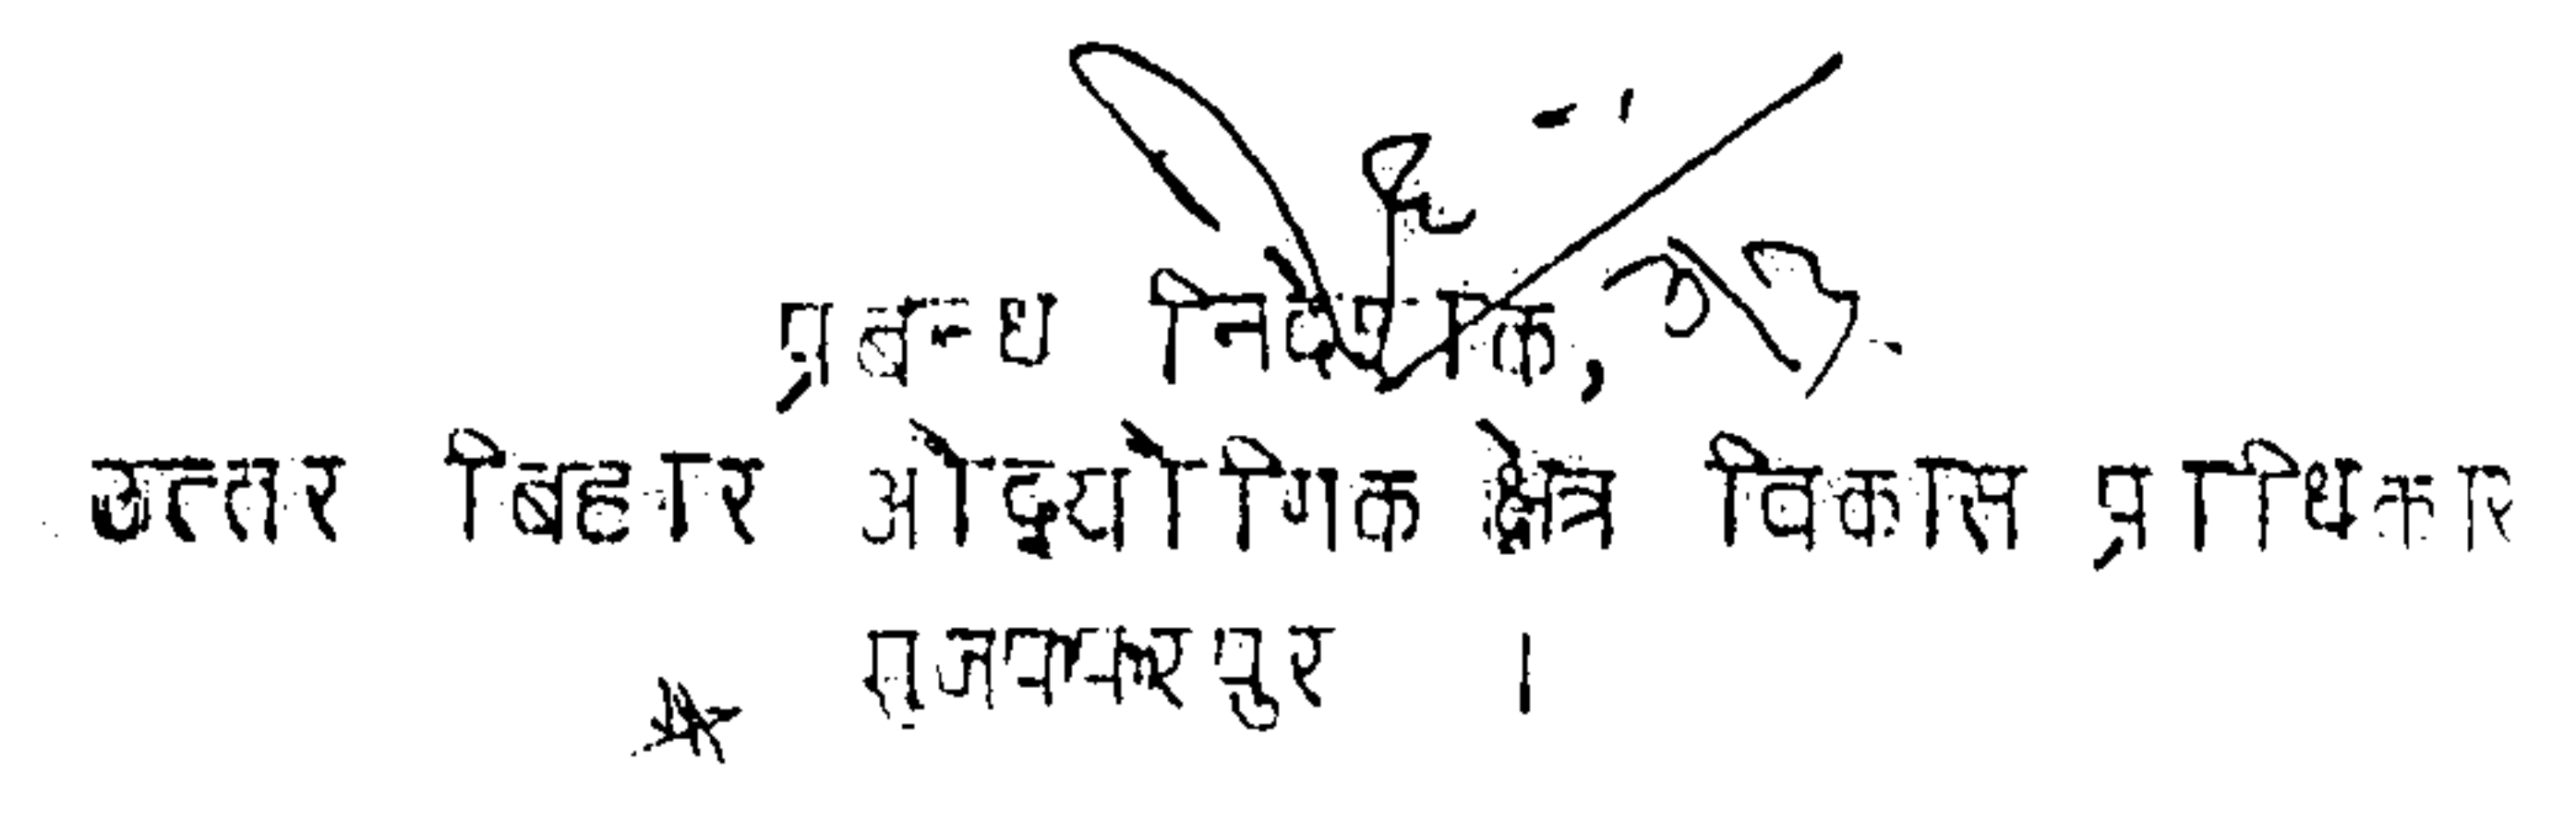 प्रबन्ध निदेशक,
उत्तर बिहार औद्योगिक क्षेत्र विकास प्राधिकार
मुजफ्फरपुर ।